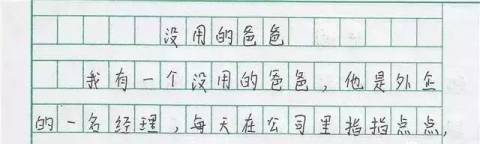 没用的爸爸
我有一个没用的爸爸，他是外企
的一名经理，每天在公司里指指点点，